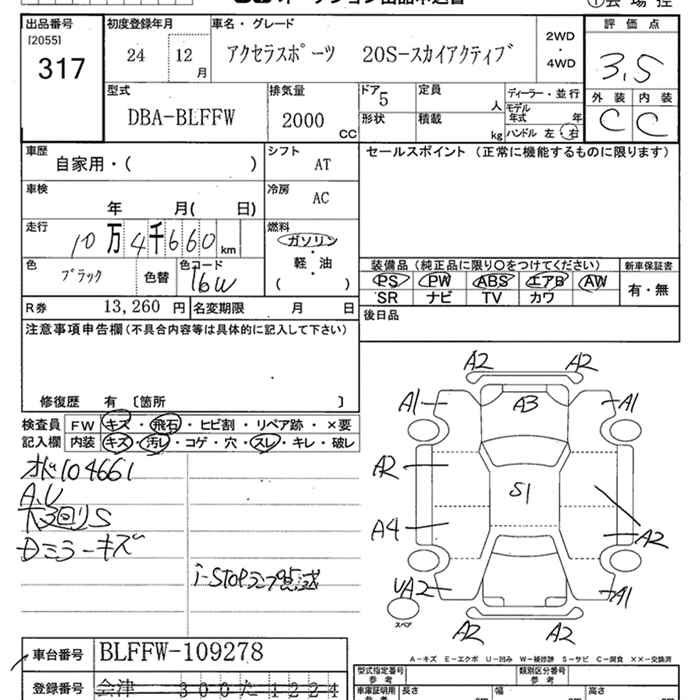 出品番号
[2055]
317
初度登録年月
24 12 月
車名・グレード
アクセラスポーツ 20S-スカイアクティブ
2WD
・
4WD
評価点
3.5
外装 内装
C C
型式
DBA-BLFFW
排気量
2000 CC
ドア 5
形状
定員 人
積載 kg
ディーラー・並行
モデル年式 年
ハンドル 左 右
車歴
自家用・( )
シフト
AT
セールスポイント (正常に機能するものに限ります)
車検
年 月( 日)
冷房
AC
走行
10万4千660 km
燃料
ガソリン
軽・油
( )
色
ブラック
色替
色コード
16W
装備品 (純正品に限り○をつけてください)
PS PW ABS エアB AW
SR ナビ TV カワ
新車保証書
有・無
R券 13,260 円
名変期限 月 日
後日品
注意事項申告欄(不具合内容等は具体的に記入して下さい)
修復歴 有 〔箇所 〕
検査員
記入欄
FW キズ・飛石・ヒビ割・リペア跡・×要
内装 キズ・汚レ・コゲ・穴・スレ・キレ・破レ
104661
A.U
S
Dミラーキズ
i-STOPランプ点滅
A2 A2
A1 A3 A1
A2
S1
A4 A2
UA2 A1
スペア
A2 A2
A-キズ E-エクボ U-凹み W-補修跡 S-サビ C-腐食 ××-交換済
車台番号 BLFFW-109278
登録番号 会津 300 た 1224
型式指定番号
参考
類別区分番号
参考
車庫証明用
参考
長さ cm
幅 cm
高さ cm